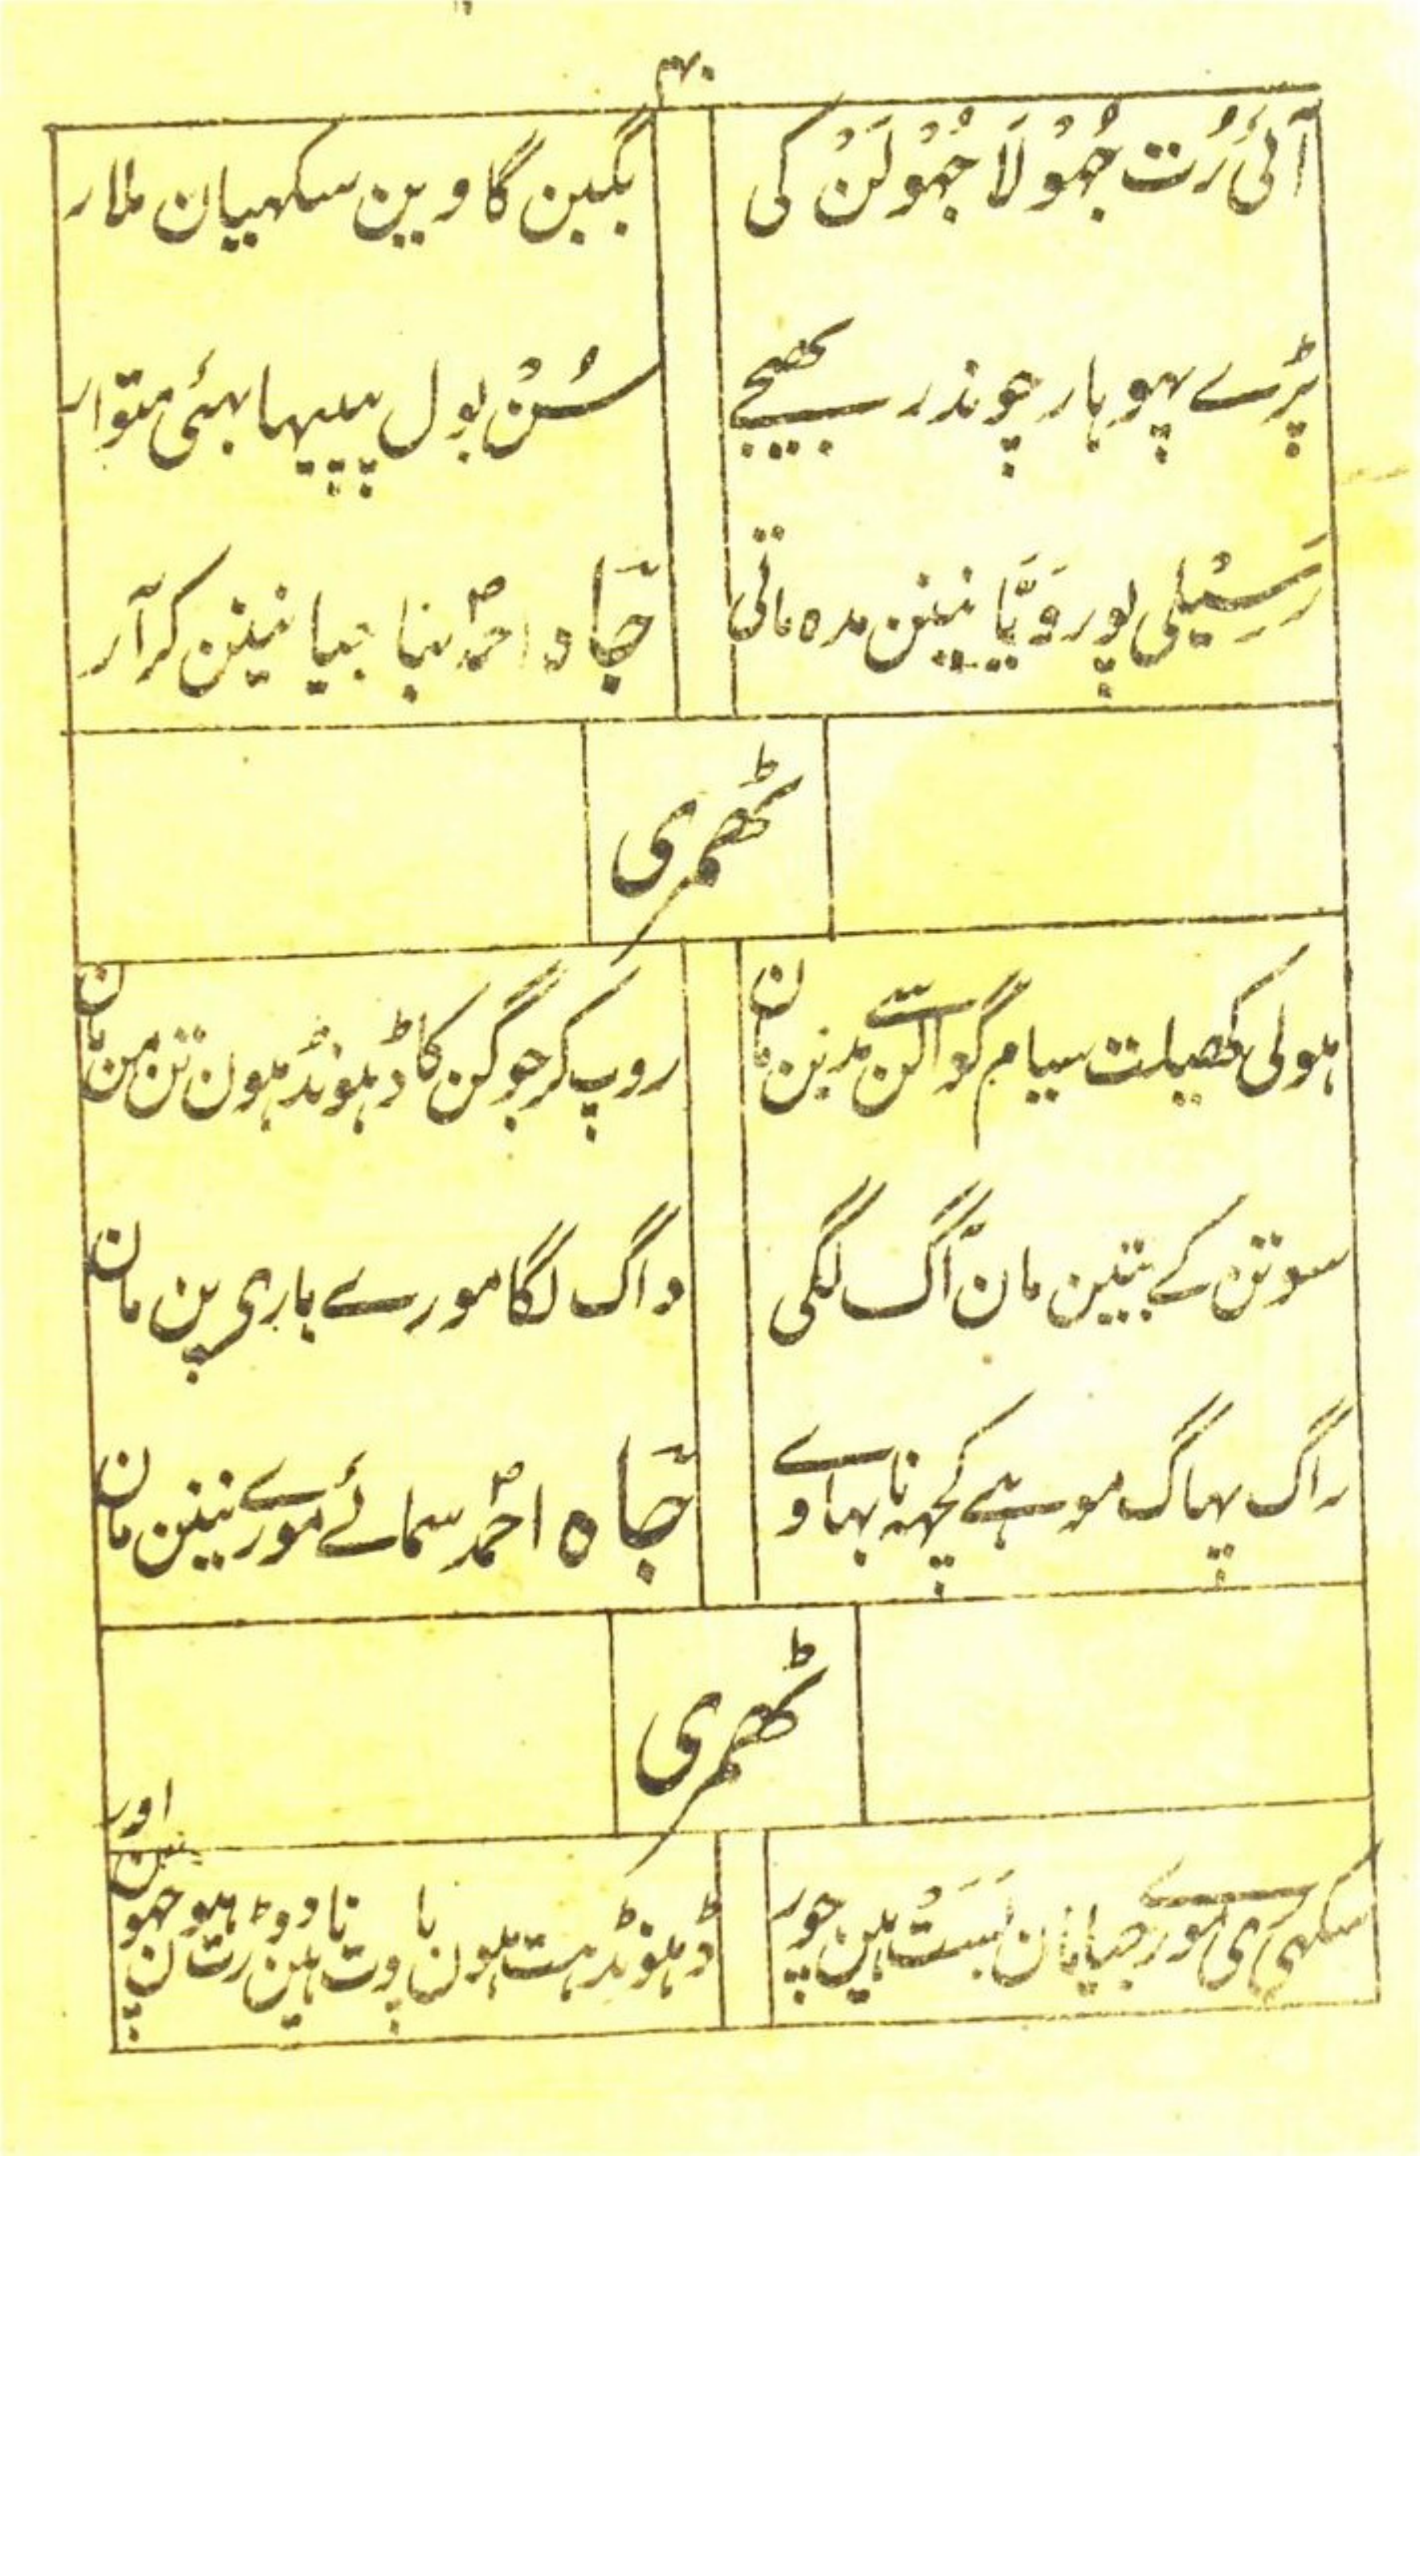 ۴۰
آئی رُت جُہُوْلَا جُہُوْلَنْ کی
بگین گاوین سکہیان ملار
پڑے پہوہار چوندر بھیجے
سُنْ بول پپیہا بہئی متوار
رَسِیْلی پوروَیَّا نینن مدہ ماتی
جاہ احمدؐ بنا جیا نینن کرآر
ٹھمری
ہولی کھیلت سیام گوالن سے مدبن مان
روپ کر جوگن کا ڈہونڈہون تن من مان
سوتن کے بتین مان آگ لگی
داگ لگا مورے باری پن مان
راگ پہاگ موہے کچہہ نا بہاوے
جاہ احمدؐ سمائے مورے نینن مان
ٹھمری
سکہی ری مورے جیا مان بَسَتْ ہین چور
ڈہونڈہت ہون پاوت ناہین رت چہون اور